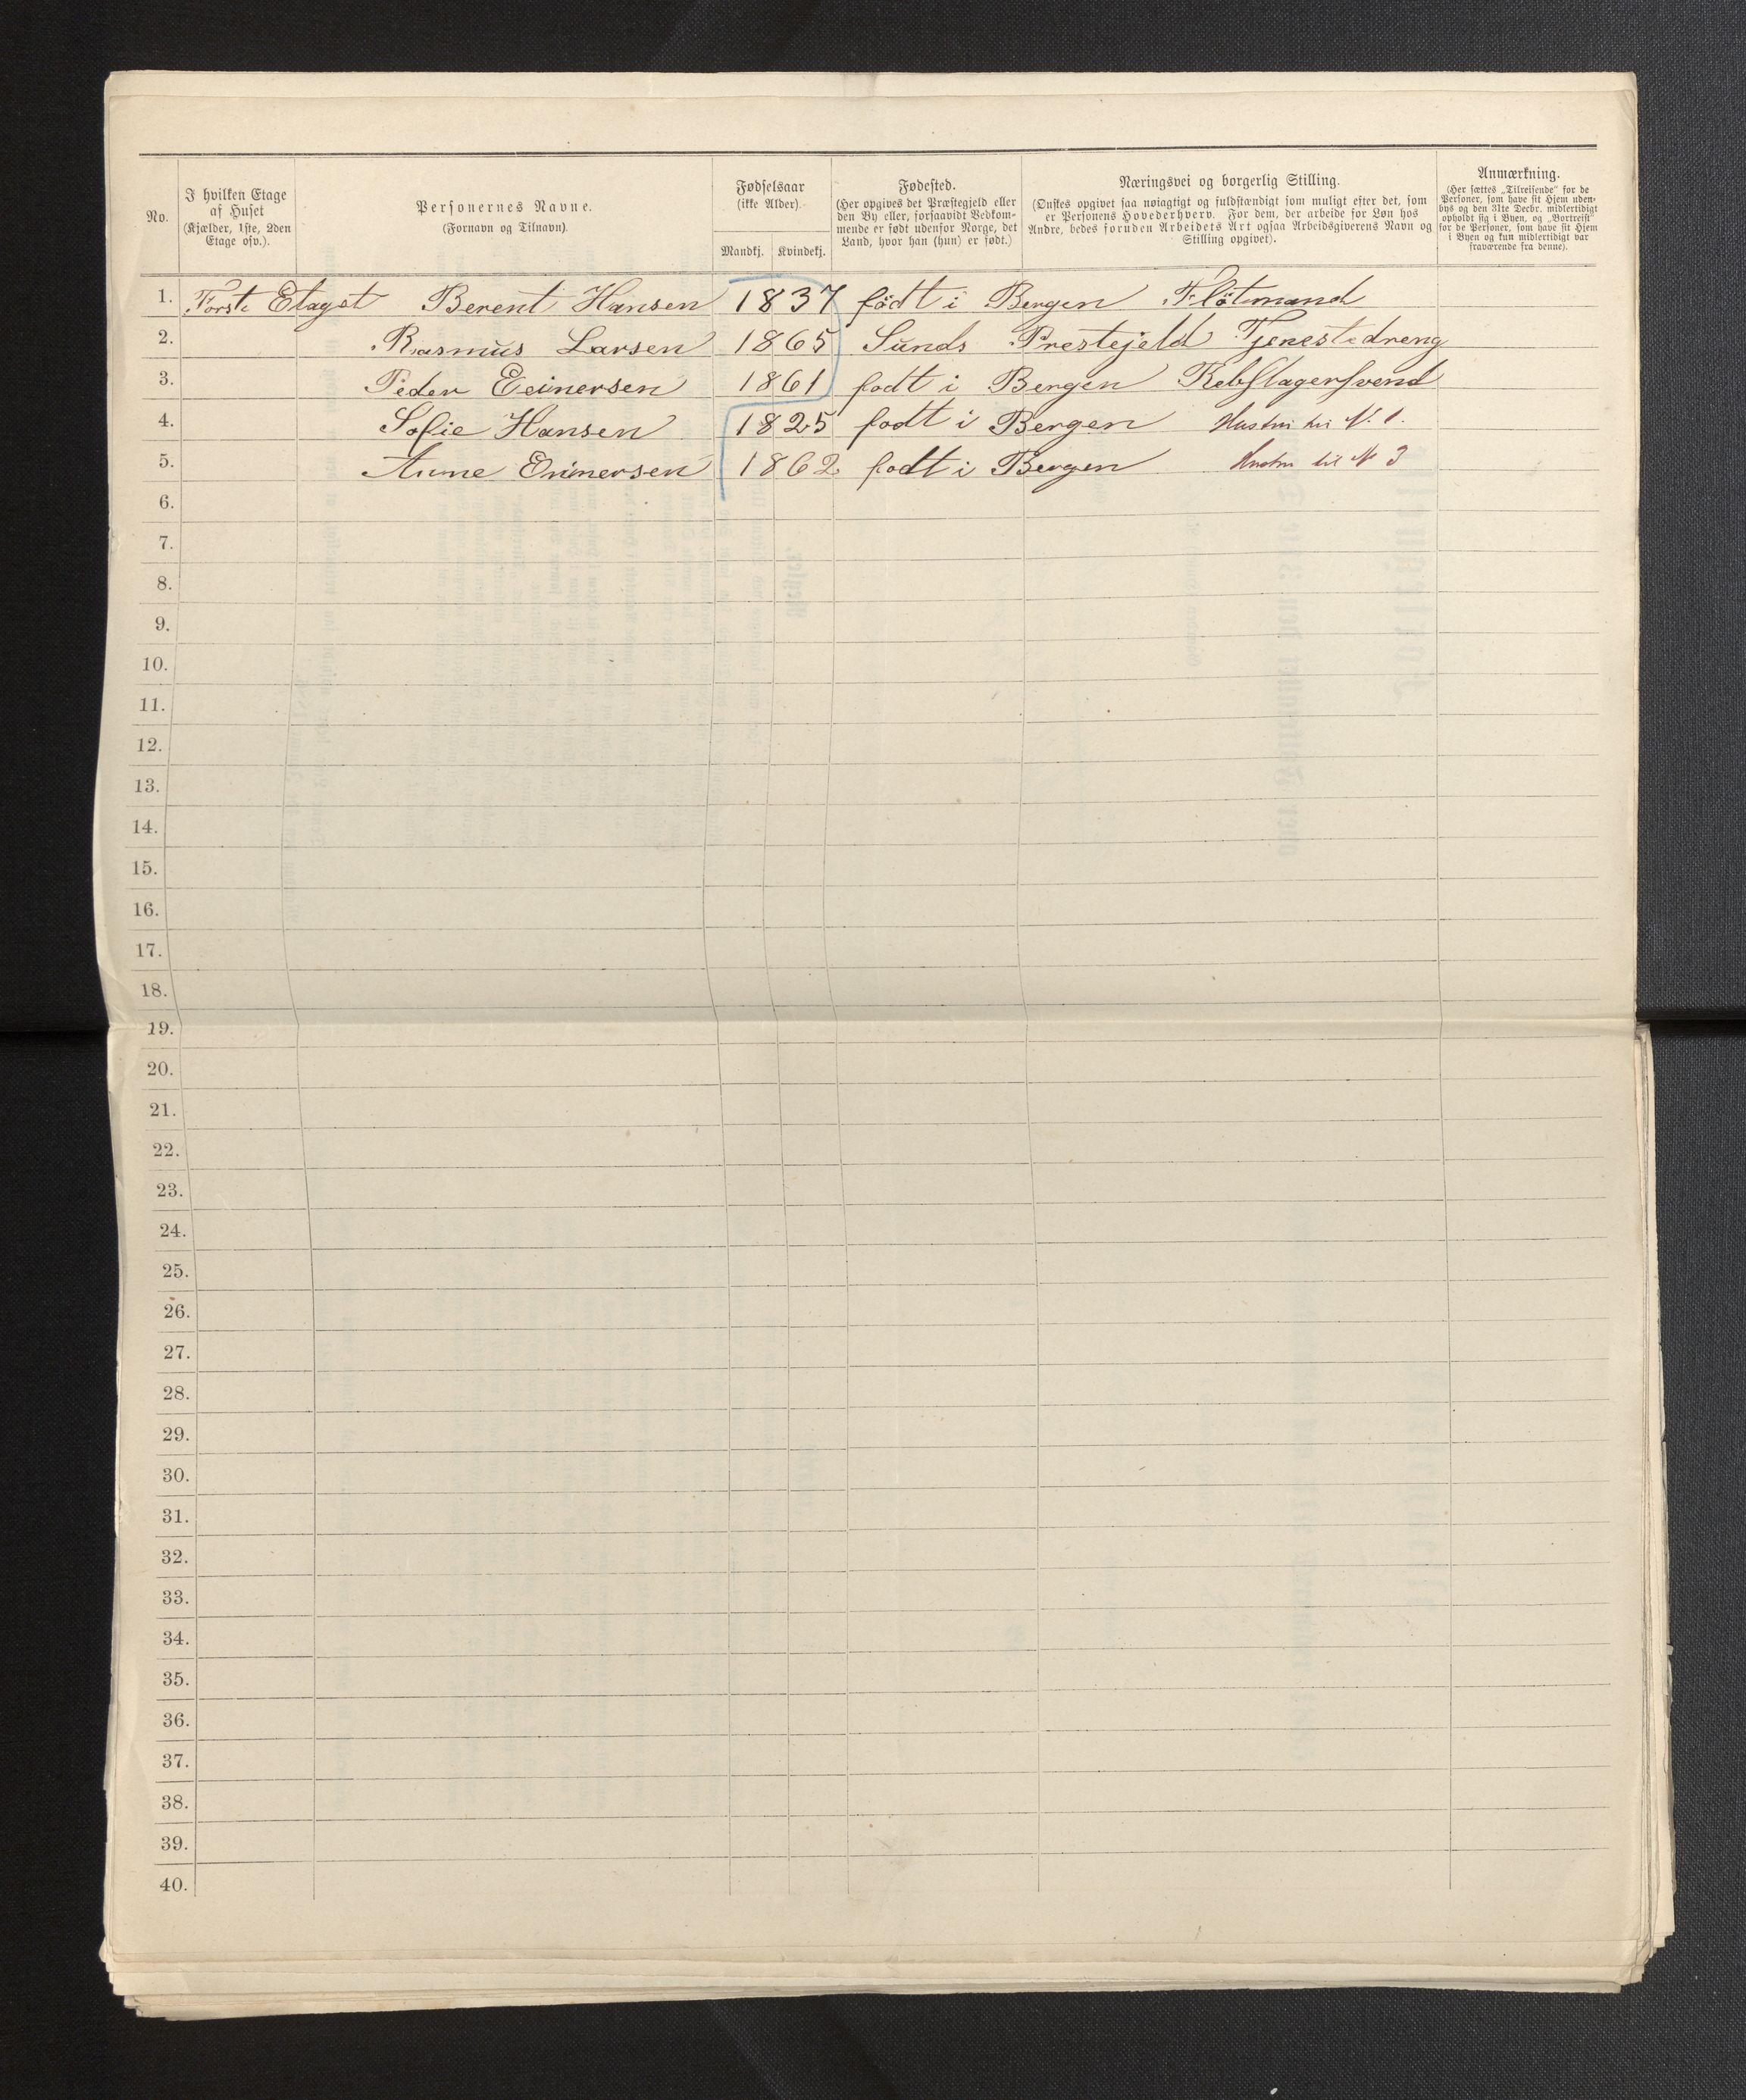 No.
I hvilken Etage
af Huset
(Kjælder, 1ste, 2den
Etage osv.).
Personernes Navne.
(Fornavn og Tilnavn).
Fødselsaar
(ikke Alder).
Mandkj. Kvindekj.
Fødested.
(Her opgives det Præstegjeld eller
den By eller, forsaavidt Vedkom-
mende er født udenfor Norge, det
Land, hvor han (hun) er født.)
Næringsvei og borgerlig Stilling.
(Ønskes opgivet saa nøiagtigt og fuldstændigt som muligt efter det, som
er Personens Hovederhverv. For dem, der arbeide for Løn hos
Andre, bedes foruden Arbeidets Art ogsaa Arbeidsgiverens Navn og
Stilling opgivet).
Anmærkning.
(Her sættes „Tilreisende“ for de
Personer, som have sit Hjem uden-
bys og den 31te Decbr. midlertidigt
opholdt sig i Byen, og „Bortreist“
for de Personer, som have sit Hjem
i Byen og kun midlertidigt var
fraværende fra denne).
1. Forste Etaget Berent Hansen 1837 födt i Bergen Flötmand
2. Rasmus Larsen 1865 Sunds Prestejeld Tjenestedreng
3. Peder Einersen 1861 fodt i Bergen Rebslagersvend
4. Sofie Hansen 1825 fodt i Bergen Hustru til N. 1.
5. Anne Einersen 1862 fodt i Bergen Hustru til N 3
6.
7.
8.
9.
10.
11.
12.
13.
14.
15.
16.
17.
18.
19.
20.
21.
22.
23.
24.
25.
26.
27.
28.
29.
30.
31.
32.
33.
34.
35.
36.
37.
38.
39.
40.